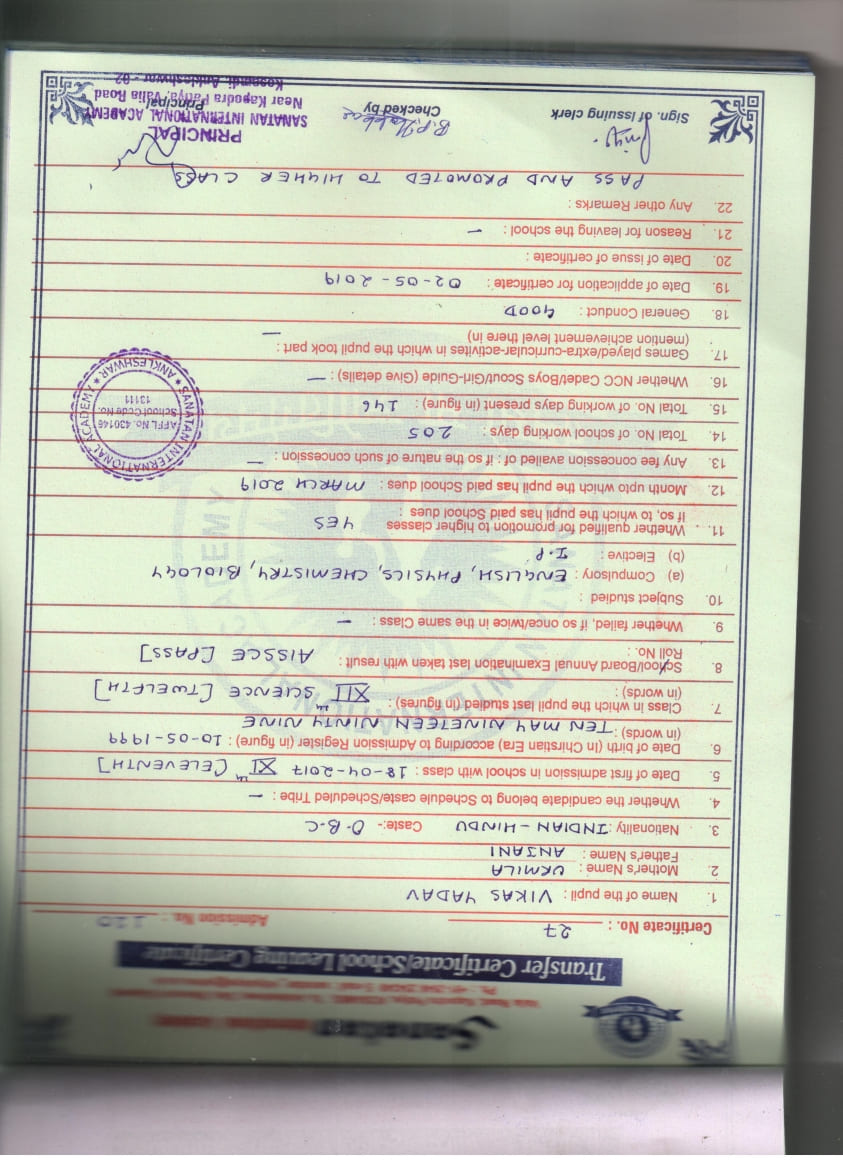 Sanatan
Transfer Certificate/School Leaving Certificate
Certificate No. : 27 Admission No. : 120
1. Name of the pupil : VIKAS YADAV
2. Mother's Name : URMILA
Father's Name : ANJANI
3. Nationality : INDIAN - HINDU Caste:- O-B-C
4. Whether the candidate belong to Schedule caste/Scheduled Tribe : -
5. Date of first admission in school with class : 18-04-2017 XI th [ELEVENTH]
6. Date of birth (in Chirstian Era) according to Admission Register (in figure) : 10-05-1999
(in words) : TEN MAY NINETEEN NINTY NINE
7. Class in which the pupil last studied (in figures) : XII th SCIENCE [TWELFTH]
(in words) :
8. School/Board Annual Examination last taken with result : AISSCE [PASS]
Roll No. :
9. Whether failed, if so once/twice in the same Class : -
10. Subject studied :
(a) Compulsory : ENGLISH, PHYSICS, CHEMISTRY, BIOLOGY
(b) Elective : I.P
11. Whether qualified for promotion to higher classes YES
If so, to which the pupil has paid School dues :
12. Month upto which the pupil has paid School dues : MARCH 2019
13. Any fee concession availed of : if so the nature of such concession : -
14. Total No. of school working days : 205
15. Total No. of working days present (in figure) : 146
16. Whether NCC Cadet/Boys Scout/Girl-Guide (Give details) : -
17. Games played/extra-curricular-activites in which the pupil took part :
(mention achievement level there in) -
18. General Conduct : GOOD
19. Date of application for certificate : 02-05-2019
20. Date of issue of certificate :
21. Reason for leaving the school : -
22. Any other Remarks :
PASS AND PROMOTED TO HIGHER CLASS
SANATAN INTERNATIONAL ACADEMY * ANKLESHWAR *
AFFL No. 430146
School Code No.
13111
Sign. of issuing clerk Checked by Principal
PRINCIPAL
SANATAN INTERNATIONAL ACADEMY
Near Kapodra Patiya, Valia Road
Kosamdi, Ankleshwar - 02